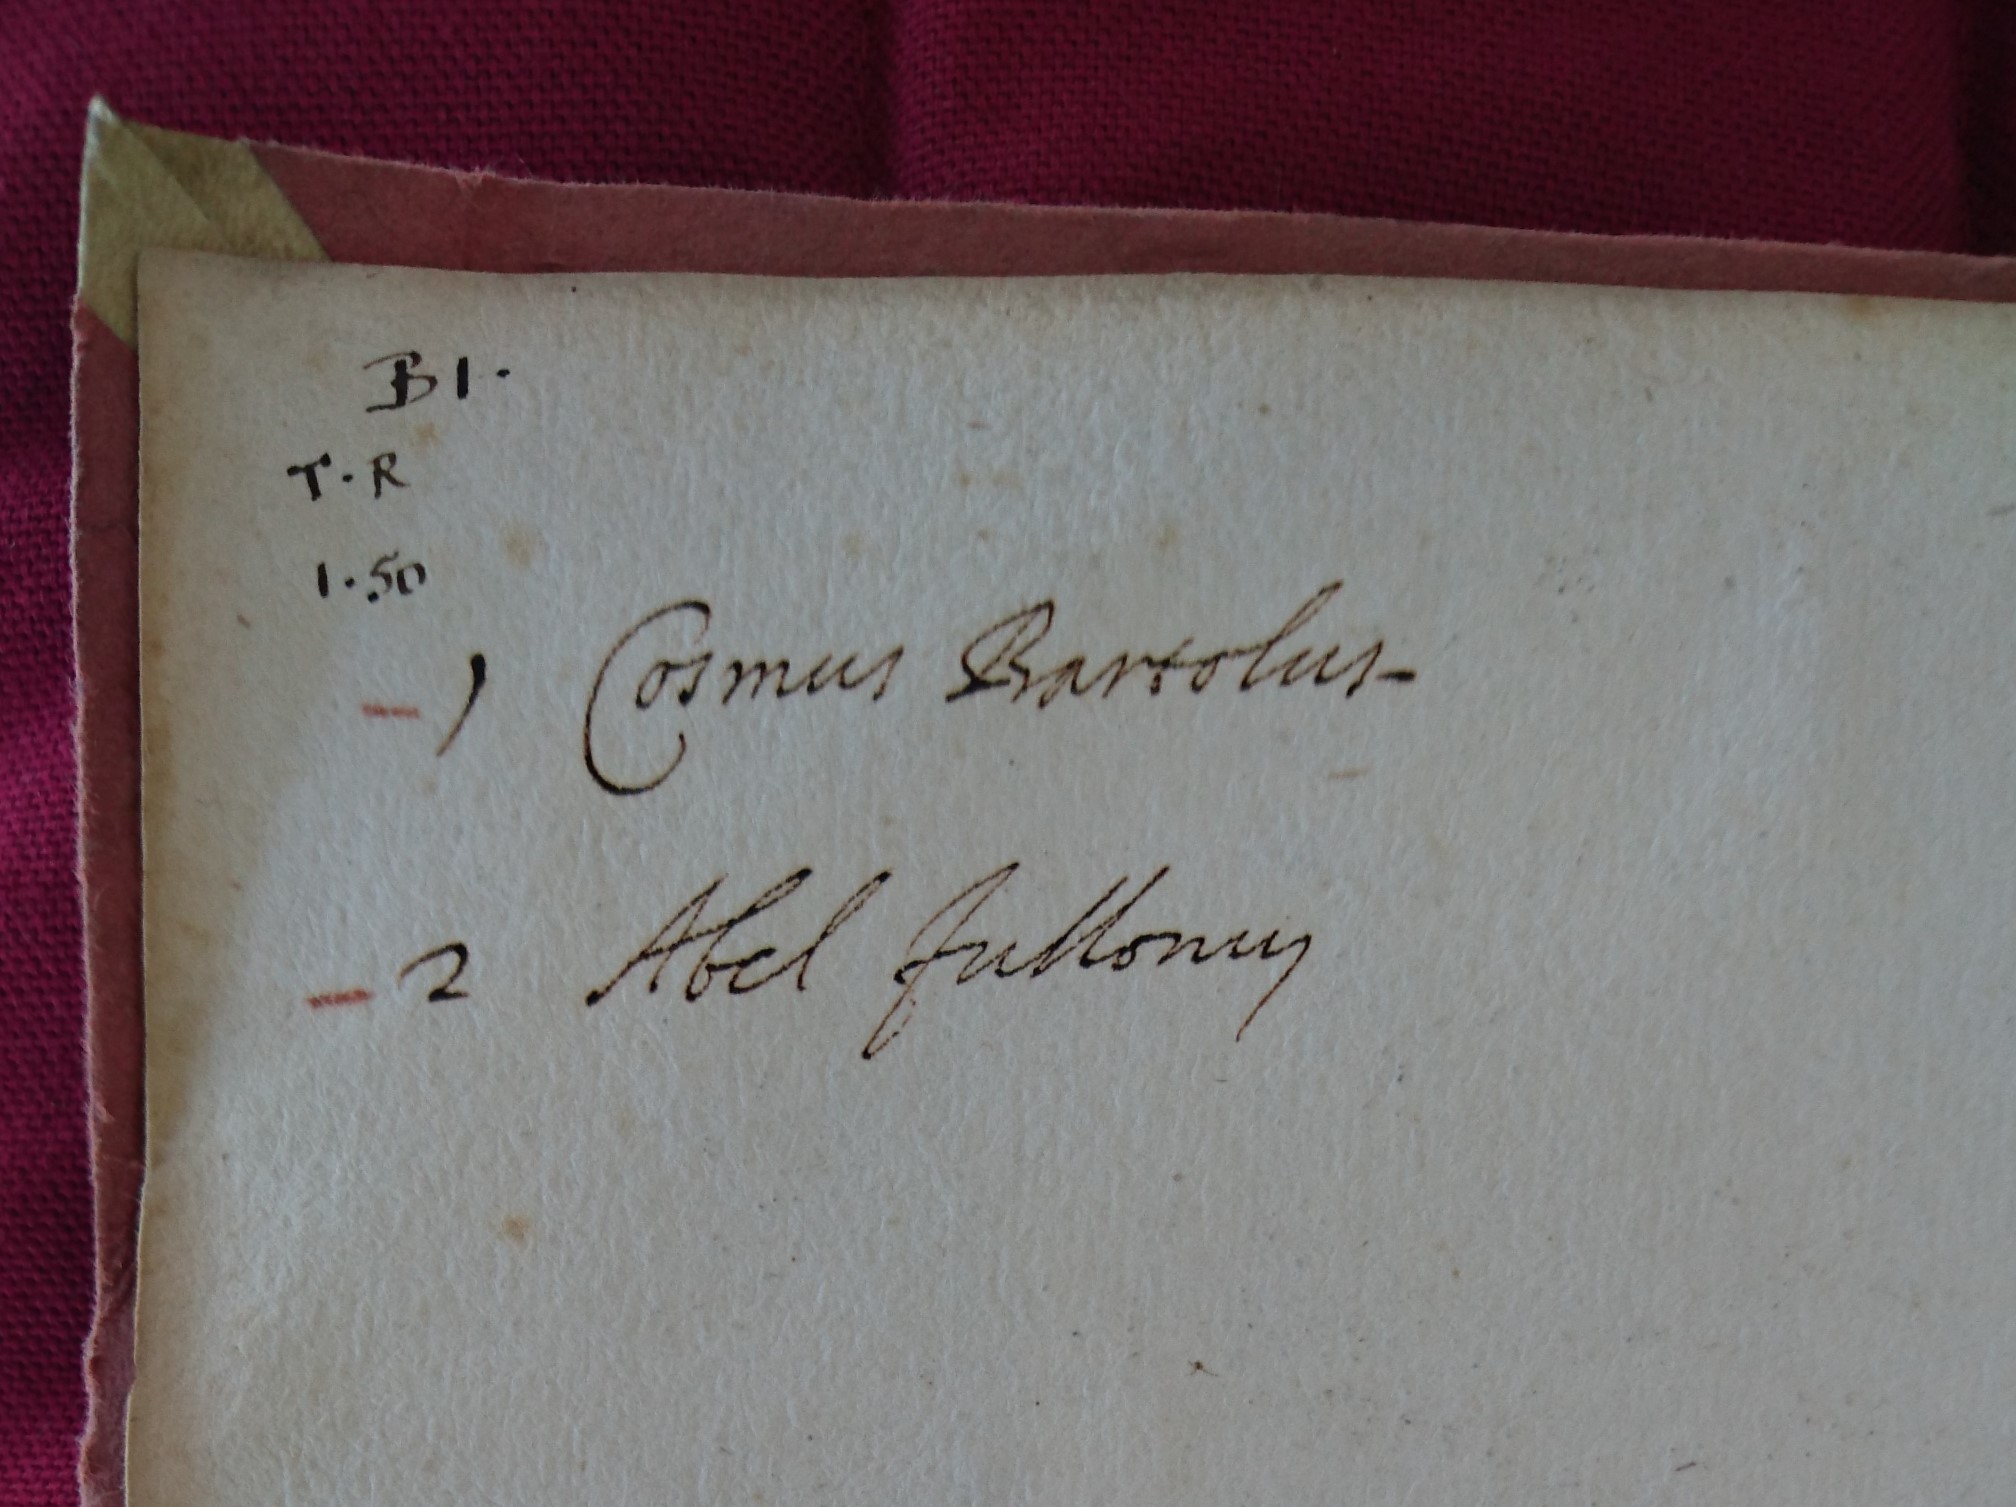 B1.
T. R
1.50
1 Cosmus Bartolus
2 Abel Fullonius